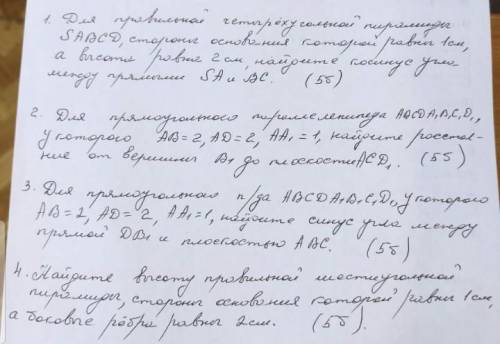 1. Для правильной четырёхугольной пирамиды
SABCD, стороны основания которой равны 1см,
а высота равна 2см, найдите косинус угла
между прямыми SA и BC. (5б)
2. Для прямоугольного параллелепипеда ABCDA1B1C1D1,
у которого AB=2, AD=2, AA1=1, найдите расстоя-
ние от вершины B1 до плоскости ACD1. (5б)
3. Для прямоугольного п/да ABCDA1B1C1D1, у которого
AB=2, AD=2, AA1=1, найдите синус угла между
прямой DB1 и плоскостью ABC. (5б)
4. Найдите высоту правильной шестиугольной
пирамиды, стороны основания которой равны 1см,
а боковые рёбра равны 2см. (5б).